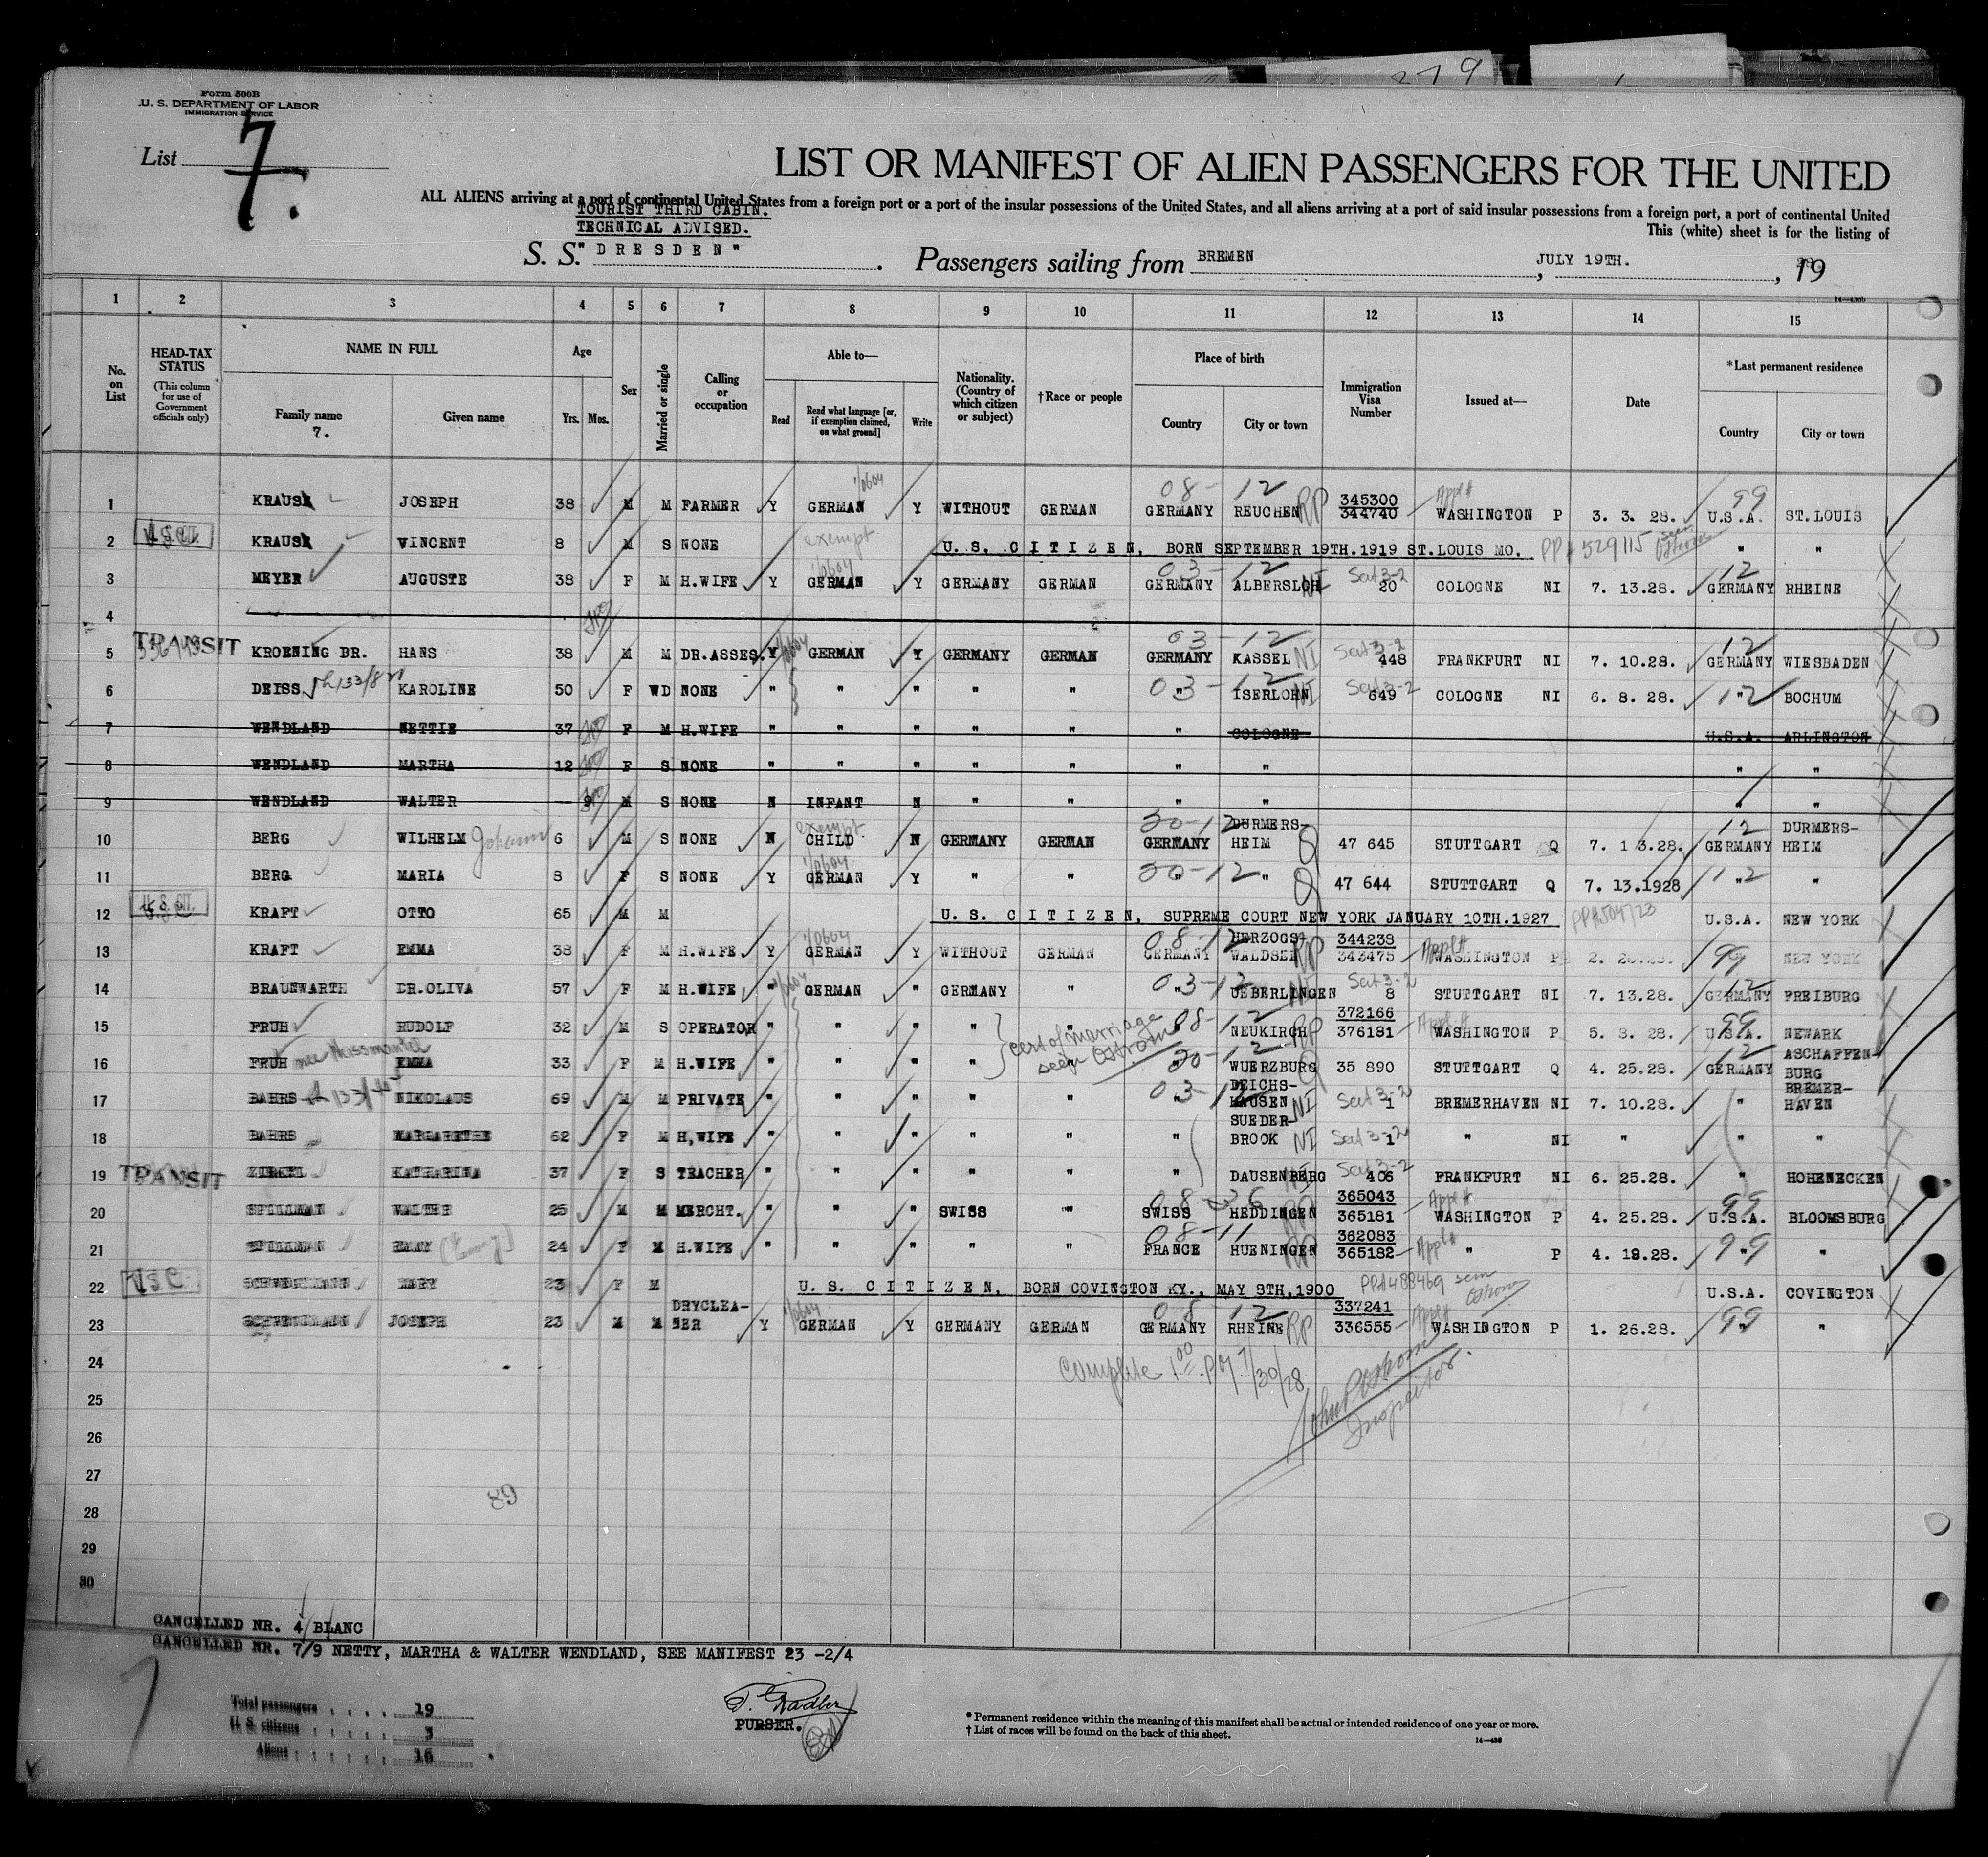 279
Form 500B
U. S. DEPARTMENT OF LABOR
IMMIGRATION SERVICE
List 7.
LIST OR MANIFEST OF ALIEN PASSENGERS FOR THE UNITED
ALL ALIENS arriving at a port of continental United States from a foreign port or a port of the insular possessions of the United States, and all aliens arriving at a port of said insular possessions from a foreign port, a port of continental United
TOURIST THIRD CABIN.
TECHNICAL ADVISED.
This (white) sheet is for the listing of
S. S. "DRESDEN". Passengers sailing from BREMEN, JULY 19TH., 1928
14—430b
1 2 3 4 5 6 7 8 9 10 11 12 13 14 15
No. on List
HEAD-TAX STATUS (This column for use of Government officials only)
NAME IN FULL
Family name 7.
Given name
Age
Yrs. Mos.
Sex
Married or single
Calling or occupation
Able to—
Read
Read what language [or, if exemption claimed, on what ground]
Write
Nationality. (Country of which citizen or subject)
†Race or people
Place of birth
Country
City or town
Immigration Visa Number
Issued at—
Date
*Last permanent residence
Country
City or town
1 KRAUS JOSEPH 38 M M FARMER Y GERMAN Y WITHOUT GERMAN 08-12 GERMANY REUCHEN RP 345300 344740 Appl# WASHINGTON P 3. 3. 28. 99 U.S.A. ST.LOUIS
2 KRAUS VINCENT 8 M S NONE exempt U. S. CITIZEN, BORN SEPTEMBER 19TH.1919 ST.LOUIS MO. PP# 529115 seen Ostrom " "
3 MEYER AUGUSTE 38 F M H.WIFE Y GERMAN Y GERMANY GERMAN 03-12 GERMANY ALBERSLOH NI Sect 3-2 20 COLOGNE NI 7. 13.28. 12 GERMANY RHEINE
4
5 TRANSIT KROENING DR. HANS 38 M M DR.ASSES. Y GERMAN Y GERMANY GERMAN 03-12 GERMANY KASSEL NI Sect 3-2 448 FRANKFURT NI 7. 10.28. 12 GERMANY WIESBADEN
6 DEISS KAROLINE 50 F WD NONE " " " " " 03-12 " ISERLOHN NI Sect 3-2 649 COLOGNE NI 6. 8. 28. 12 " BOCHUM
7 WENDLAND NETTIE 37 F M H.WIFE " " " " " " COLOGNE U.S.A. ARLINGTON
8 WENDLAND MARTHA 12 F S NONE " " " " " " " " "
9 WENDLAND WALTER — 9 M S NONE N INFANT N " " " " " "
10 BERG WILHELM Johann 6 M S NONE N exempt CHILD N GERMANY GERMAN 30-12 GERMANY DURMERS-HEIM Q 47 645 STUTTGART Q 7. 1 3.28. 12 GERMANY DURMERS-HEIM
11 BERG MARIA 8 F S NONE Y GERMAN Y " " 30-12 " " Q 47 644 STUTTGART Q 7. 13.1928 12 " "
12 KRAFT OTTO 65 M M U. S. CITIZEN, SUPREME COURT NEW YORK JANUARY 10TH.1927 U.S.A. NEW YORK
13 KRAFT EMMA 38 F M H.WIFE Y GERMAN Y WITHOUT GERMAN 08-12 GERMANY HERZOGS-WALDSEE RP 344238 343475 Appl# WASHINGTON P 99 NEW YORK
14 BRAUNWARTH DR.OLIVA 57 F M H.WIFE " GERMAN " GERMANY " 03-12 " UEBERLINGEN NI Sect 3-2 8 STUTTGART NI 7. 13.28. 12 GERMANY FREIBURG
15 FRUH RUDOLF 32 M S OPERATOR " " " " " 08-12 " NEUKIRCH RP 372166 376181 Appl# WASHINGTON P 5. 3. 28. 99 U.S.A. NEWARK
cert of marriage seen Ostrom
16 FRUH nee EMMA 33 F M H.WIFE " " " " " 30-12 " WUERZBURG Q 35 890 STUTTGART Q 4. 25.28. 12 GERMANY ASCHAFFEN-BURG
17 BAHRS NIKOLAUS 69 M M PRIVATE " " " " " 03-12 " DEICHS-HAUSEN NI Sect 3-2 1 BREMERHAVEN NI 7. 10.28. " BREMER-HAVEN
18 BAHRS MARGARETHE 62 F M H,WIFE " " " " " " SUEDER-BROOK NI Sect 3-2 1 " NI " " "
19 TRANSIT ZIRKEL KATHARINA 37 F S TEACHER " " " " " " DAUSENBERG NI Sect 3-2 406 FRANKFURT NI 6. 25.28. " HOHENECKEN
20 SPILLMAN WALTER 25 M M MERCHT. " " " SWISS " 08-36 SWISS HEDDINGEN RP 365043 365181 Appl# WASHINGTON P 4. 25.28. 99 U.S.A. BLOOMSBURG
21 SPILLMAN EMMY 24 F M H.WIFE " " " " " 08-11 FRANCE HUENINGEN RP 362083 365182 Appl# " P 4. 19.28. 99 " "
22 USC MARY 23 F M U. S. CITIZEN, BORN COVINGTON KY., MAY 8TH,1900 PP# 488469 seen Ostrom U.S.A. COVINGTON
23 JOSEPH 23 M M DRYCLEA-NER Y GERMAN Y GERMANY GERMAN 08-12 GERMANY RHEINE RP 337241 336555 Appl# WASHINGTON P 1. 26.28. 99 " "
24
Complete 1 00 PM 7/30/28
John P Ostrom
Inspector.
25
26
27
89
28
29
30
CANCELLED NR. 4 BLANC
CANCELLED NR. 7/9 NETTY, MARTHA & WALTER WENDLAND, SEE MANIFEST 23 -2/4
Total passengers . . . . 19
U. S. citizens . . . . 3
Aliens . . . . 16
PURSER.
* Permanent residence within the meaning of this manifest shall be actual or intended residence of one year or more.
† List of races will be found on the back of this sheet.
14—430